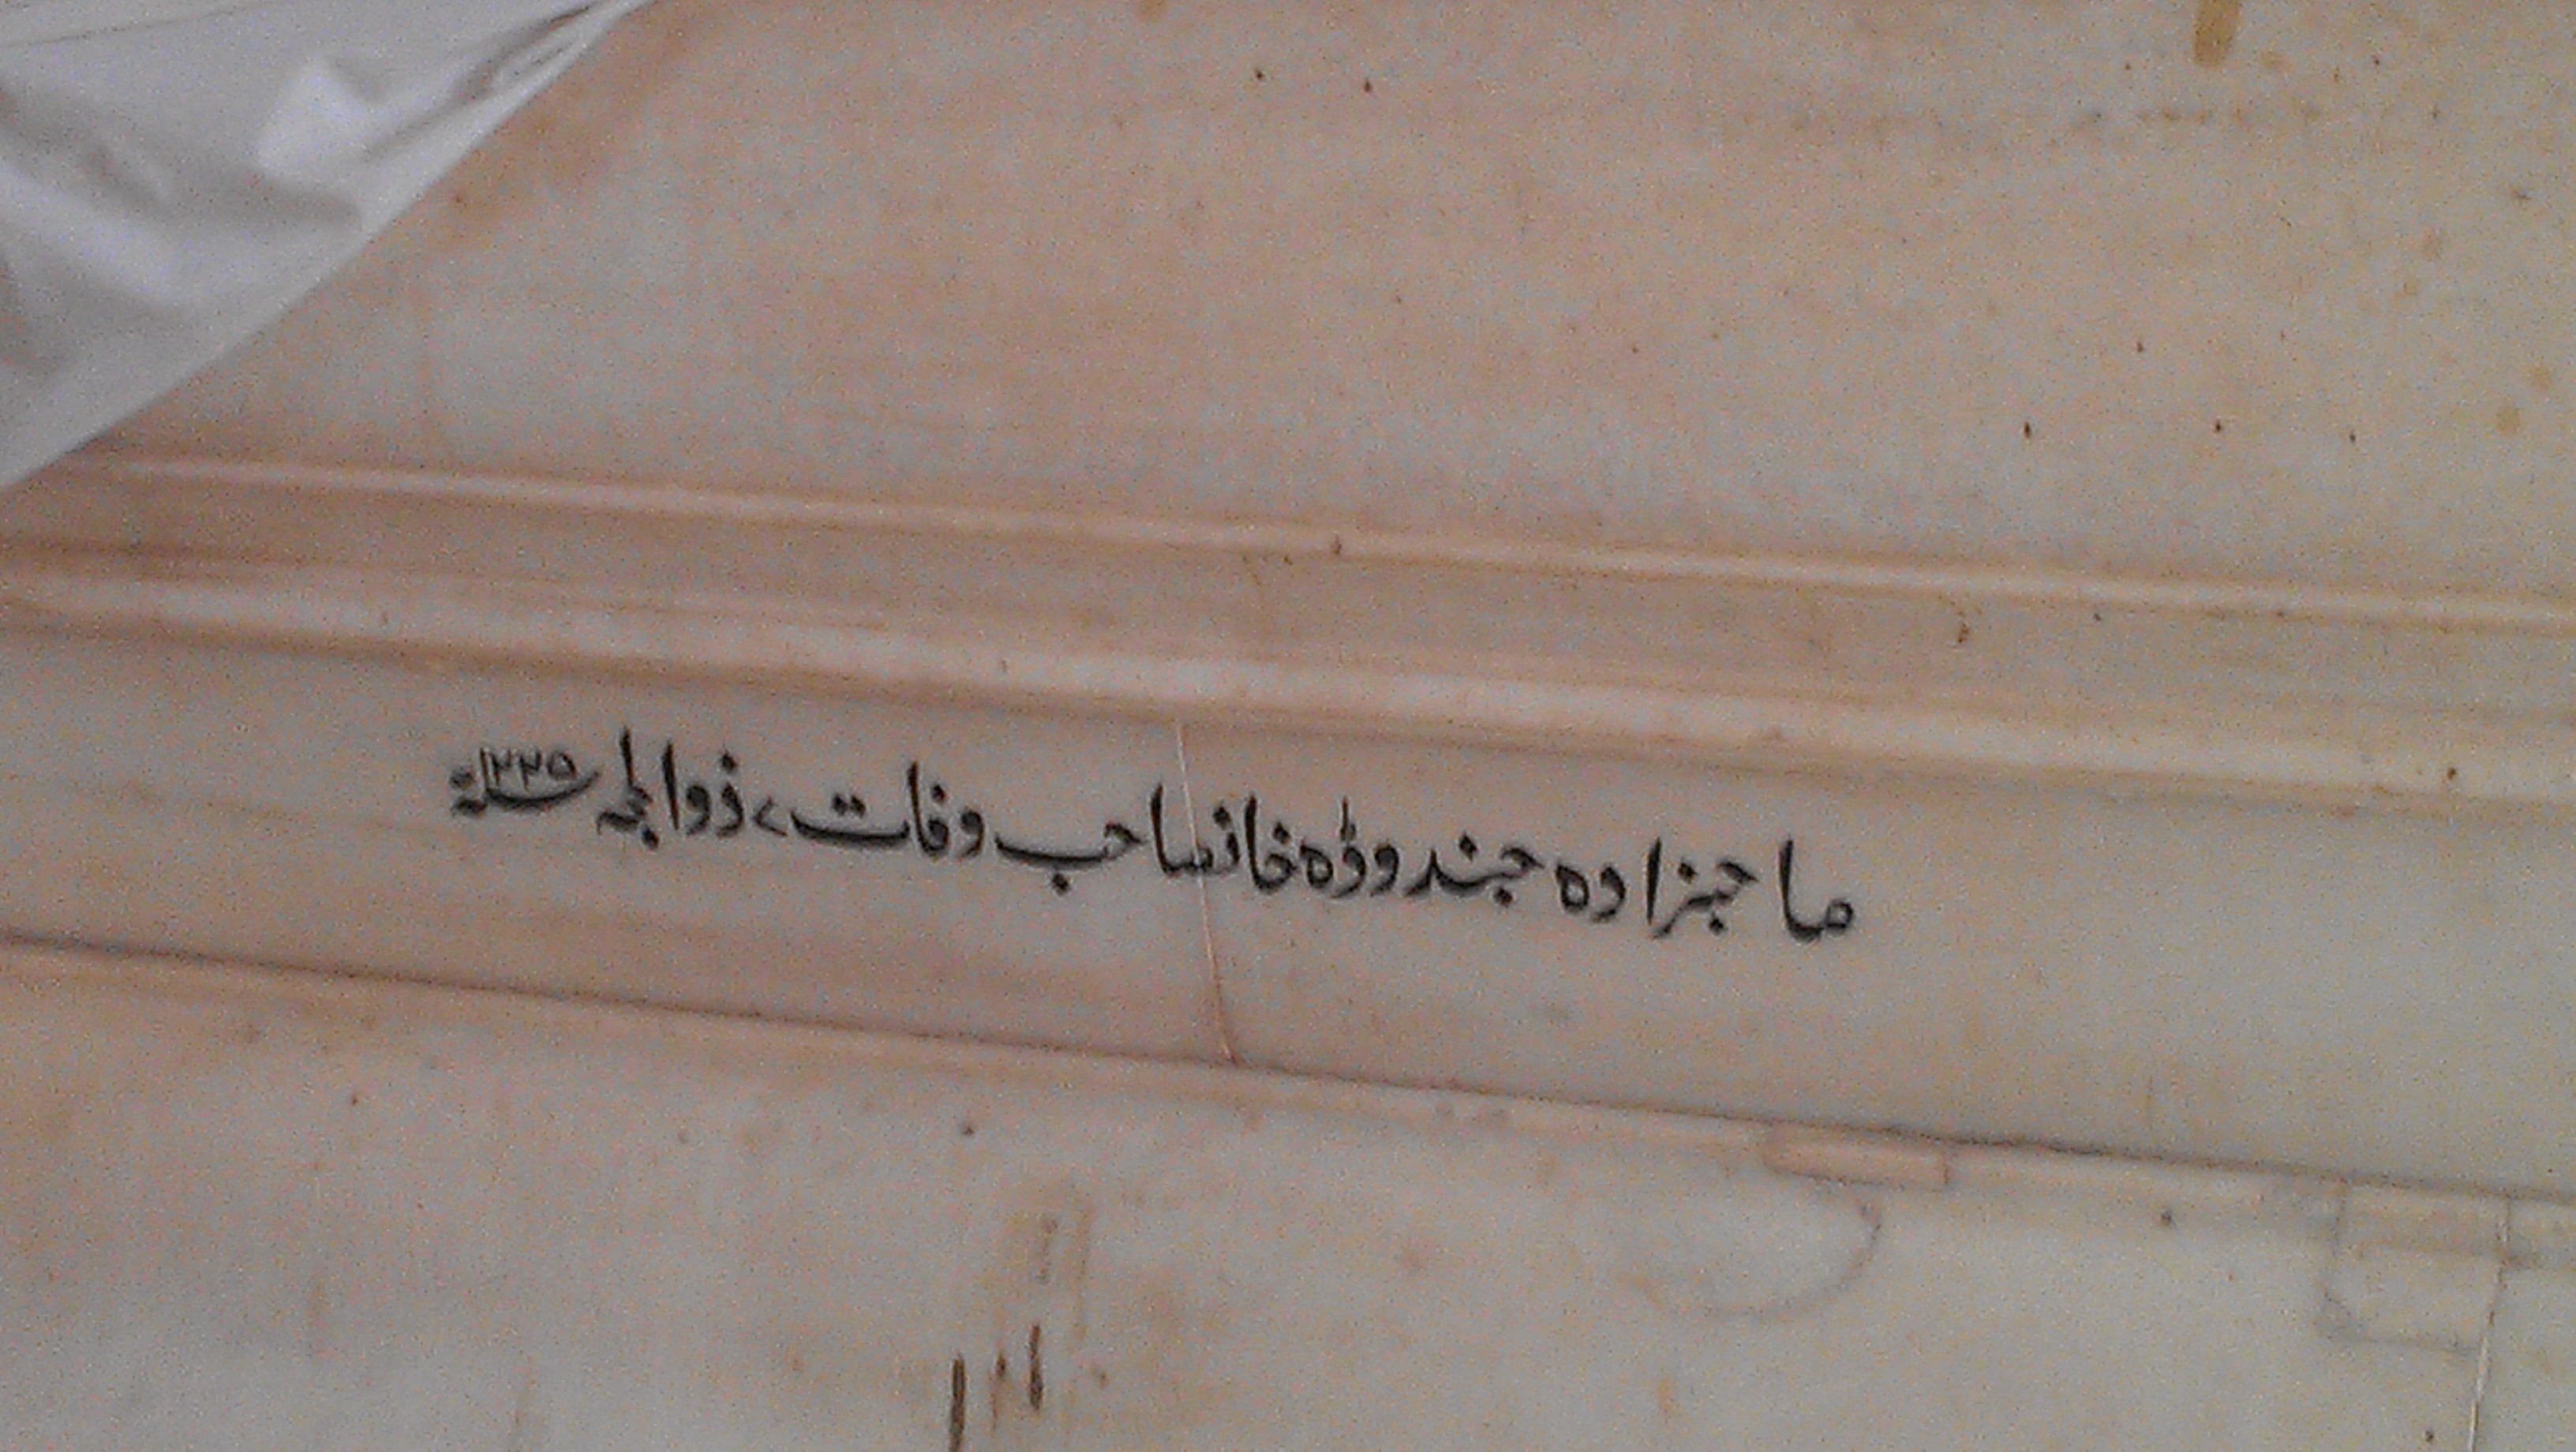 صاحبزادہ جندوڈہ خانصاحب وفات ۷ ذوالحجہ ۱۲۲۵ھ